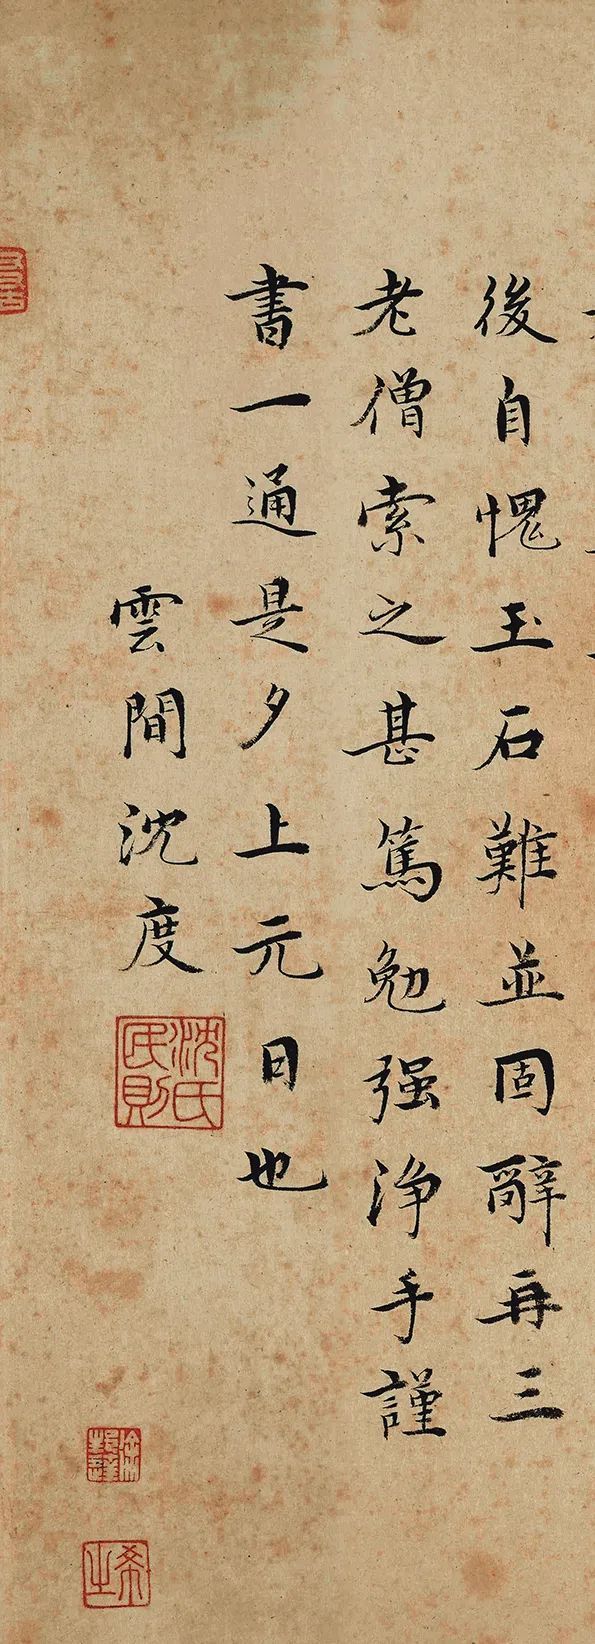 後自愧玉石難並固辭再三
老僧索之甚篤勉强淨手謹
書一通是夕上元日也
雲間沈度
沈氏民則